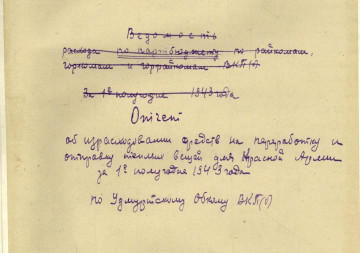 Ведомость
расхода по партбюджету по райкомам,
горкомам и горрайкомам ВКП(б)
за 1е полугодие 1943 года
Отчет
об израсходовании средств на переработку и
отправку теплих вещей для Красной Армии
за 1е полугодие 1943 года
по Удмуртскому Обкому ВКП(б)